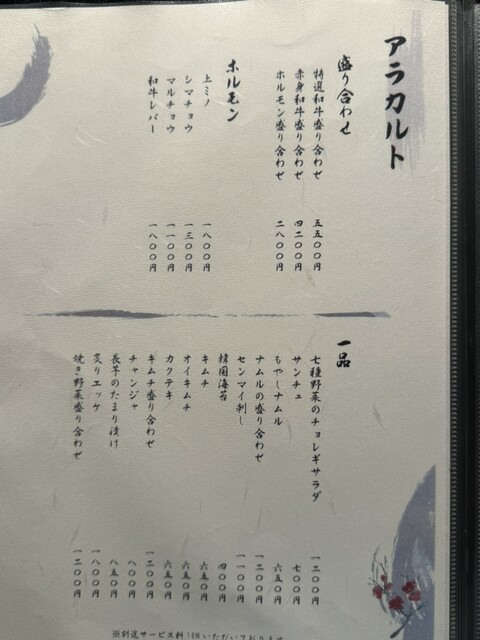 アラカルト
盛り合わせ
特選和牛盛り合わせ 五五〇〇円
赤身和牛盛り合わせ 四二〇〇円
ホルモン盛り合わせ 二八〇〇円
ホルモン
上ミノ 一八〇〇円
シマチョウ 一三〇〇円
マルチョウ 一一〇〇円
和牛レバー 一八〇〇円
一品
七種野菜のチョレギサラダ 一二〇〇円
サンチュ 七〇〇円
もやしナムル 六五〇円
ナムルの盛り合わせ 一二〇〇円
センマイ刺し 一一〇〇円
韓国海苔 四〇〇円
キムチ 六五〇円
オイキムチ 六五〇円
カクテキ 六五〇円
キムチ盛り合わせ 一二〇〇円
チャンジャ 八〇〇円
長芋のたまり漬け 八五〇円
炙りエッケ 一八〇〇円
焼き野菜盛り合わせ 一二〇〇円
※別途サービス料10%いただいておりま